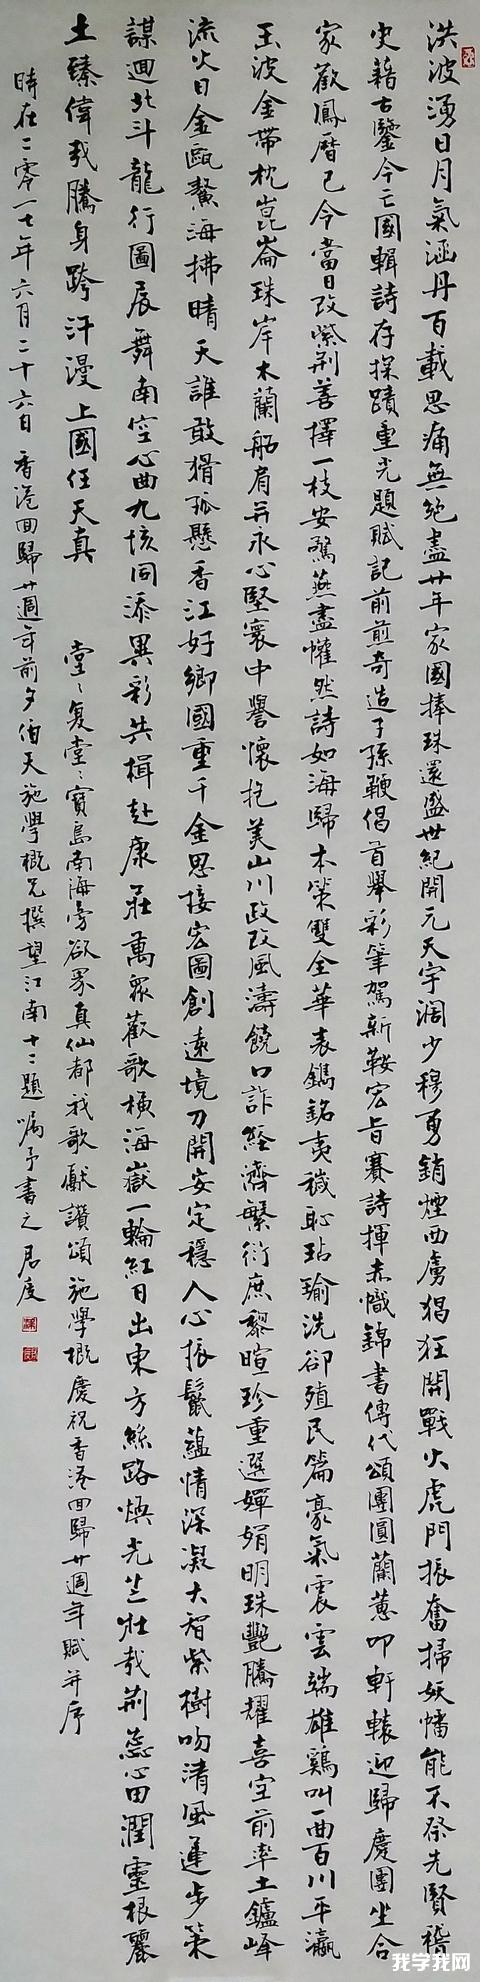 洪波湧日月氣涵丹百載思痛無絕盡廿年家國捧珠還盛世紀開元天宇濶少穆勇銷煙西虜猖狂開戰火虎門振奮掃妖幡能不祭先賢稽
史藉古鑒今亡國輯詩存探賾重光題賦記前煎奇造子孫鞭倡首舉彩筆駕新鞍宏旨賽詩揮赤幟錦書傳代頌團圓蘭蕙叩軒轅迎歸慶團坐合
家歡鳳曆已今當日改紫荊善擇一枝安驚燕盡懽然詩如海歸本策雙全華表鐫銘夷穢恥玷瑜洗卻殖民篇豪氣震雲端雄鷄叫一曲百川平瀛
玉波金帶枕崑崙珠岸木蘭船肩並永心堅寰中譽懷抱美山川政改風濤饒口詐經濟繁衍庶黎暄珍重選嬋娟明珠艷騰耀喜空前率土鑪峰
流火日金甌鰲海拂晴天誰敢猾孤懸香江好鄉國重千金思接宏圖創遠境刀開安定穩人心振鬣蘊情深凝大智紫樹吻清風運步策
謀迴北斗龍行圖展舞南空心曲九垓同添異彩共楫赴康莊萬眾歡歌橫海嶽一輪紅日出東方絲路煥光芒壯哉荊蕊心田潤靈根麗
土臻偉哉騰身跨汗漫上國任天真 堂堂復堂堂寶島南海旁欲眾真仙都我歌獻讚頌施學概慶祝香港回歸廿週年賦并序
時在二零一七年六月二十六日香港回歸廿週年前夕伯天施學概兄撰望江南十二題囑予書之君度
我学我网